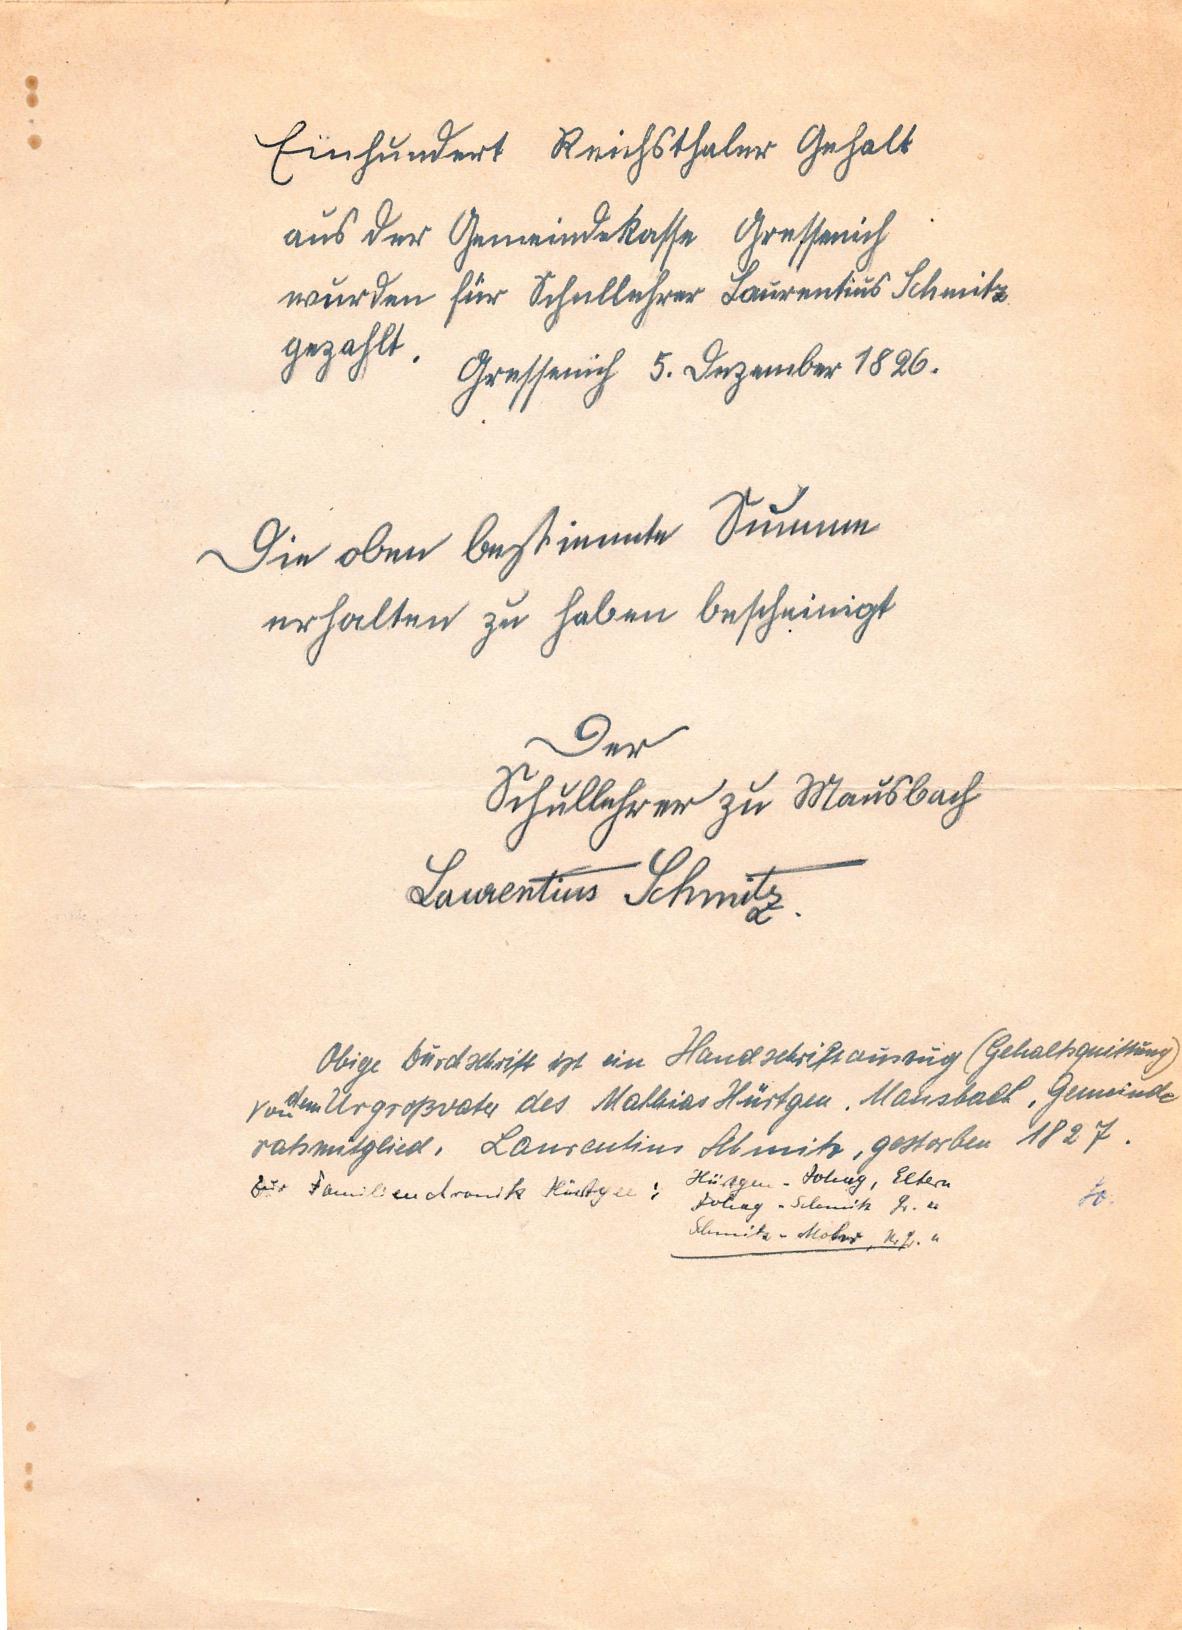 Einhundert Reichsthaler Gehalt
aus der Gemeindekasse Gressenich
wurden für Schullehrer Laurentius Schmitz
gezahlt.
Gressenich 5. Dezember 1826.
Die oben bestimmte Summe
erhalten zu haben bescheinigt
Der
Schullehrer zu Mausbach
Laurentius Schmitz.
Obige Durchschrift ist ein Handschriftauszug (Gehaltsquittung)
von dem Urgroßvater des Mathias Hürtgen, Mausbach, Gemeinde
ratsmitglied. Laurentius Schmitz, gestorben 1827.
Zur Familienchronik Hürtgen: Hürtgen - Eltern
- Schmitz Gr. "
Schmitz - Mohr, U. Gr. "